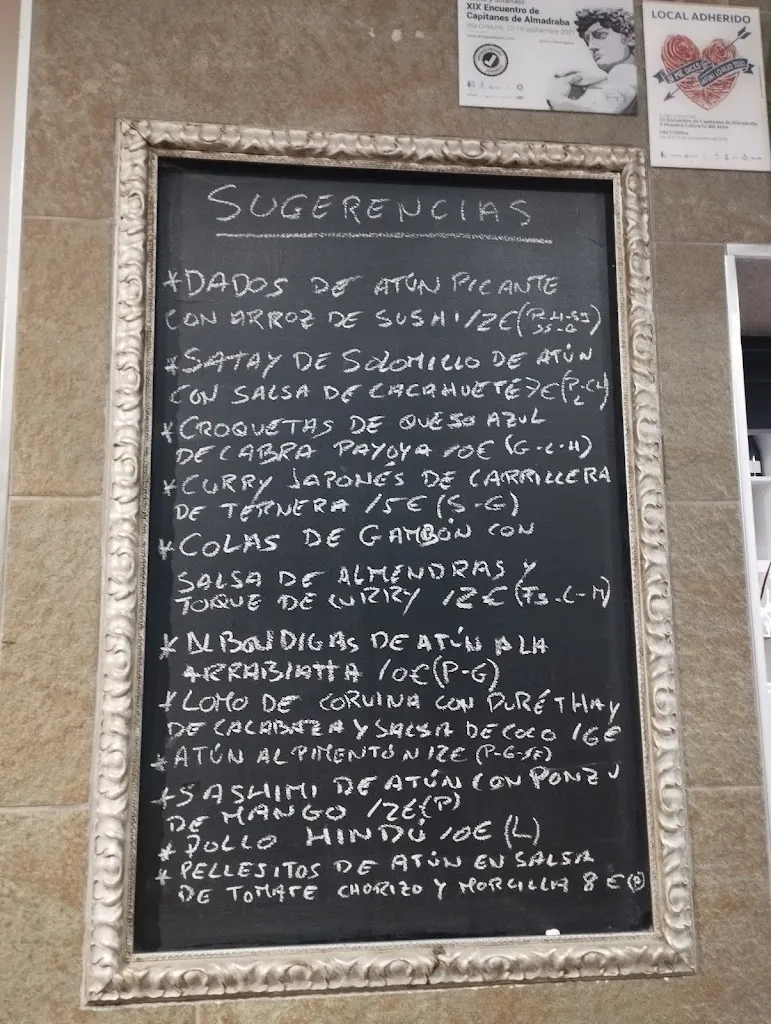 XIX Encuentro de
Capitanes de Almadraba
LOCAL ADHERIDO
SUGERENCIAS
*DADOS DE ATÚN PICANTE
CON ARROZ DE SUSHI 12€
*SATAY DE SOLOMILLO DE ATÚN
CON SALSA DE CACAHUETE 7€
*CROQUETAS DE QUESO AZUL
DE CABRA PAYOYA 10€ (G-L-H)
*CURRY JAPONÉS DE CARRILLERA
DE TERNERA 15€ (S-G)
*COLAS DE GAMBÓN CON
SALSA DE ALMENDRAS Y
TOQUE DE CURRY 12€
*ALBONDIGAS DE ATÚN A LA
ARRABIATTA 10€ (P-G)
*LOMO DE CORVINA CON PURÉ THAY
DE CALABAZA Y SALSA DE COCO 16€
*ATÚN AL PIMENTÓN 12€ (P-G-SE)
*SASHIMI DE ATÚN CON PONZU
DE MANGO 12€ (P)
*POLLO HINDÚ 10€ (L)
*PELLESITOS DE ATÚN EN SALSA
DE TOMATE CHORIZO Y MORCILLA 8€ (P)